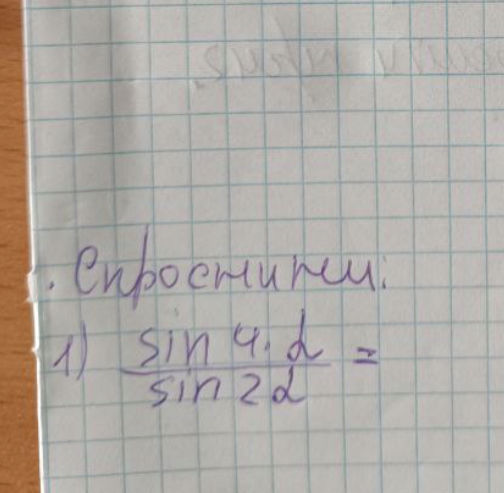 . Спростити:
1) sin 4·α / sin 2α =